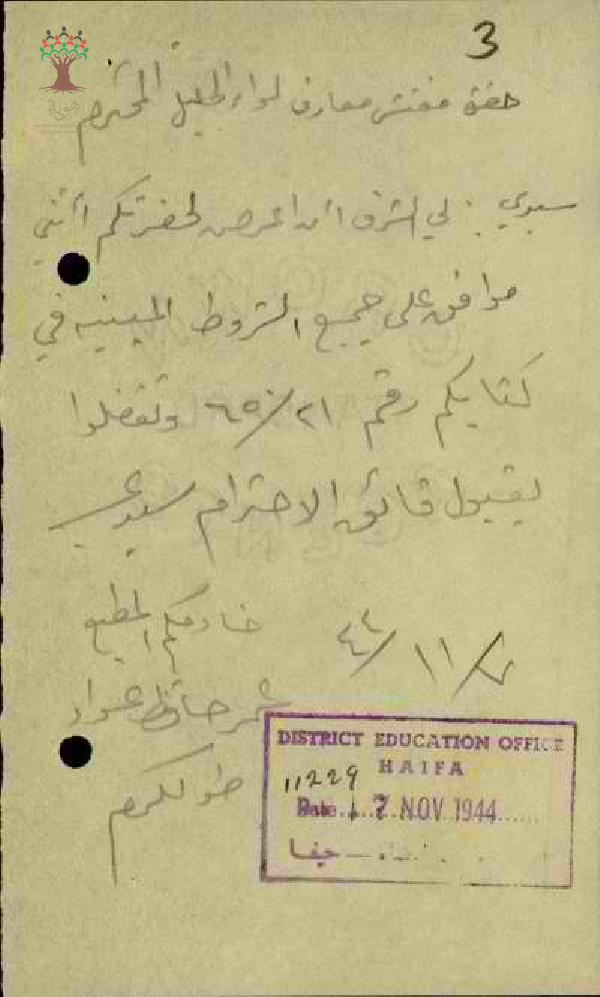 3
حضرة مفتش معارف لواء الجليل المحترم
سيدي : لي الشرف ان اعرض لحضرتكم انني
موافق على جميع الشروط المبينه في
كتابكم رقم ٦٥/٢١ وتفضلوا
بقبول فائق الاحترام سيدي
خادمكم المطيع
١١/ ٤٤
عمر حافظ عواد
طولكرم
DISTRICT EDUCATION OFFICE
HAIFA
11229
Date 7 NOV 1944
حيفا